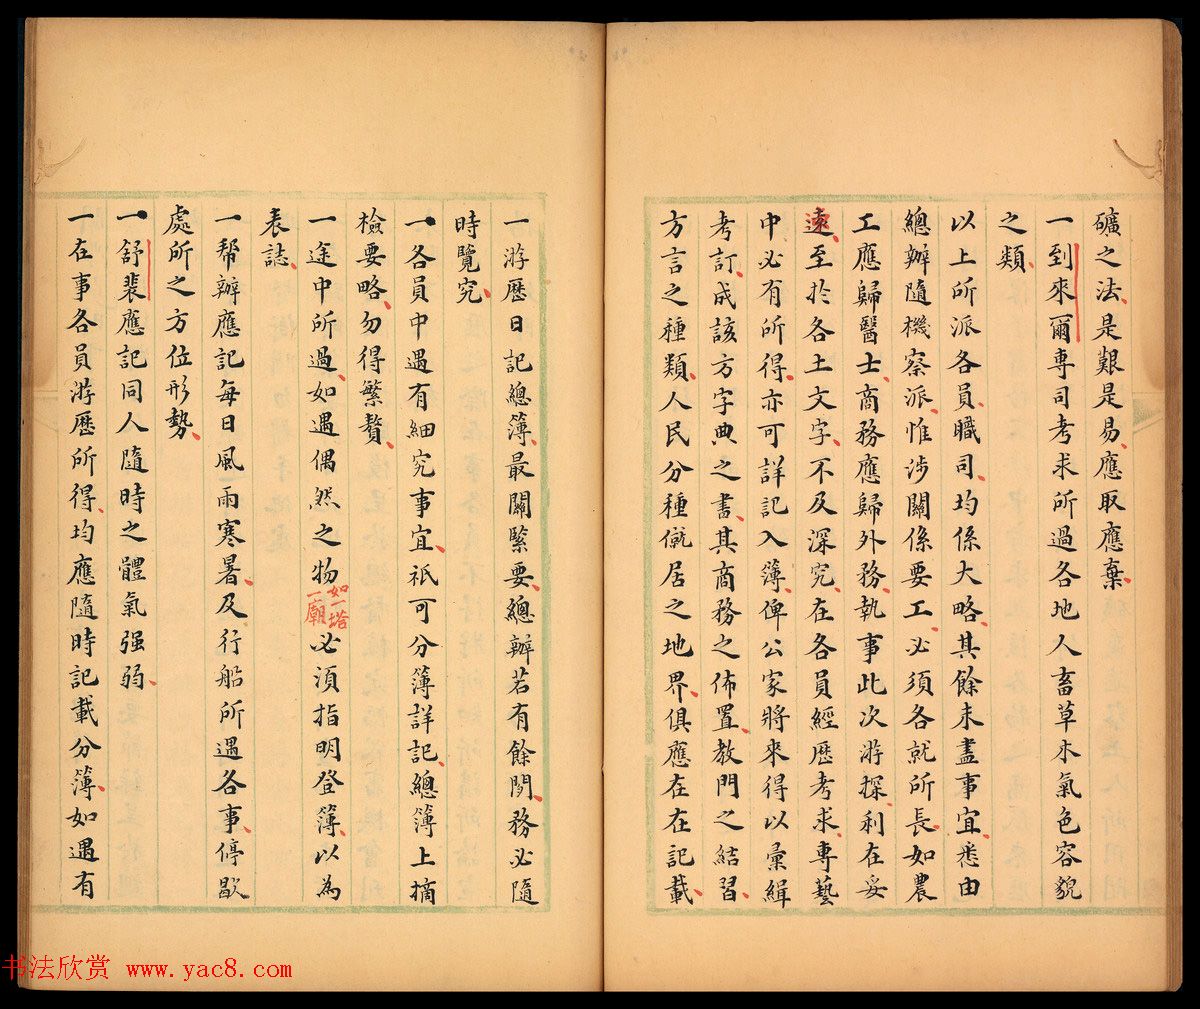 礦之法、是艱是易、應取應棄、
一到來爾專司考求所過各地人畜草木氣色容貌
之類、
以上所派各員、職司、均係大略、其餘未盡事宜、悉由
總辦隨機察派、惟涉關係要工、必須各就所長、如農
工應歸醫士、商務應歸外務、執事此次游探、利在妥
速、至於各土文字、不及深究、在各員經歷考求、專藝
中必有所得、亦可詳記入簿、俾公家將來得以彙緝
考訂、成該方字典之書、其商務之佈置、教門之結習、
方言之種類、人民分種、僦居之地界、俱應在在記載、
一游歷日記總簿、最關緊要、總辦若有餘閒、務必隨
時覽究、
一各員中遇有細究事宜、祇可分簿詳記、總簿上摘
檢要略、勿得繁贅、
一途中所過、如遇偶然之物如一塔一廟必須指明登簿、以為
表誌、
一幫辦應記每日風雨寒暑、及行船所遇各事、停歇
處所之方位形勢、
一舒裴應記同人隨時之體氣强弱、
一在事各員游歷所得、均應隨時記載分簿、如遇有
书法欣赏 www.yac8.com